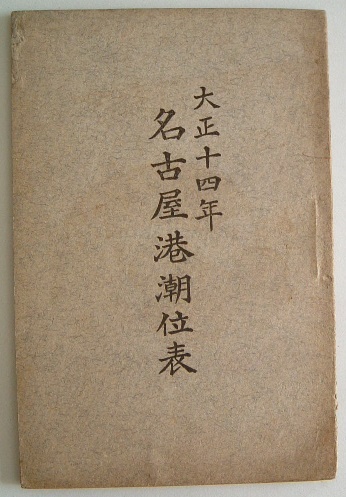 大正十四年
名古屋港潮位表